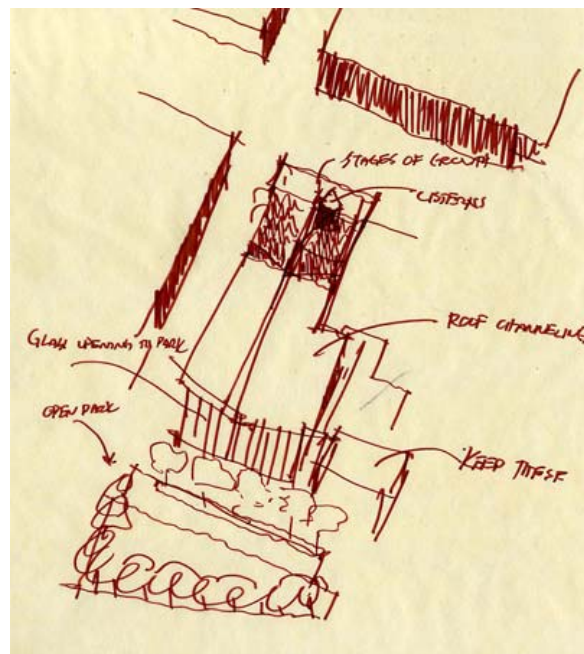 STAGES OF GROWTH
CISTERNS
ROOF CHANNELING
GLASS OPENING TO PARK
OPEN PARK
KEEP THESE